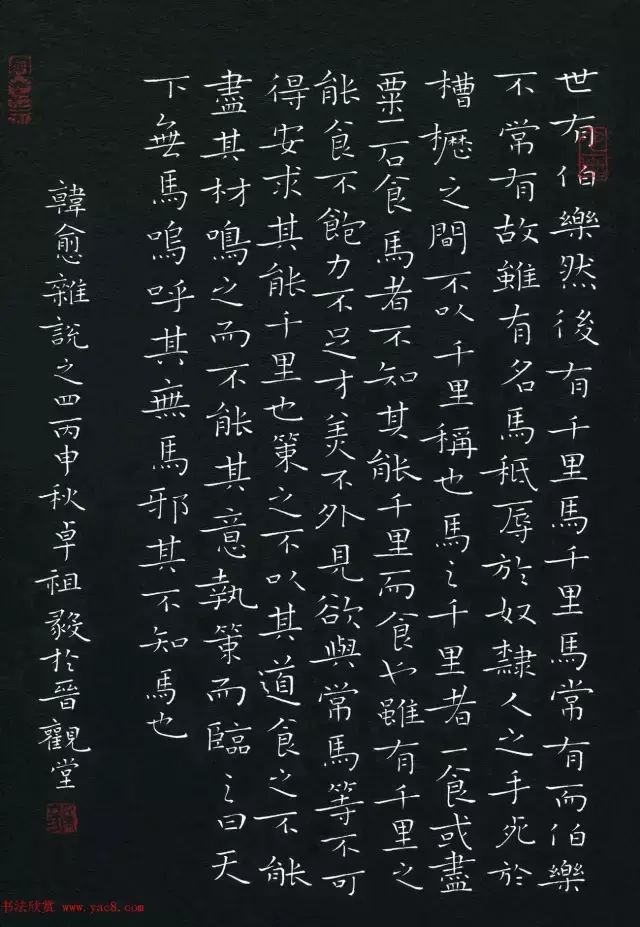 世有伯樂然後有千里馬千里馬常有而伯樂
不常有故雖有名馬秖辱於奴隸人之手死於
槽櫪之間不以千里稱也馬之千里者一食或盡
粟一石食馬者不知其能千里而食也雖有千里之
能食不飽力不足才美不外見欲與常馬等不可
得安求其能千里也策之不以其道食之不能
盡其材鳴之而不能其意執策而臨之曰天
下無馬嗚呼其無馬邪其不知馬也
韓愈雜說之四丙申秋卓祖毅於晉觀堂
书法欣赏 www.yac8.com